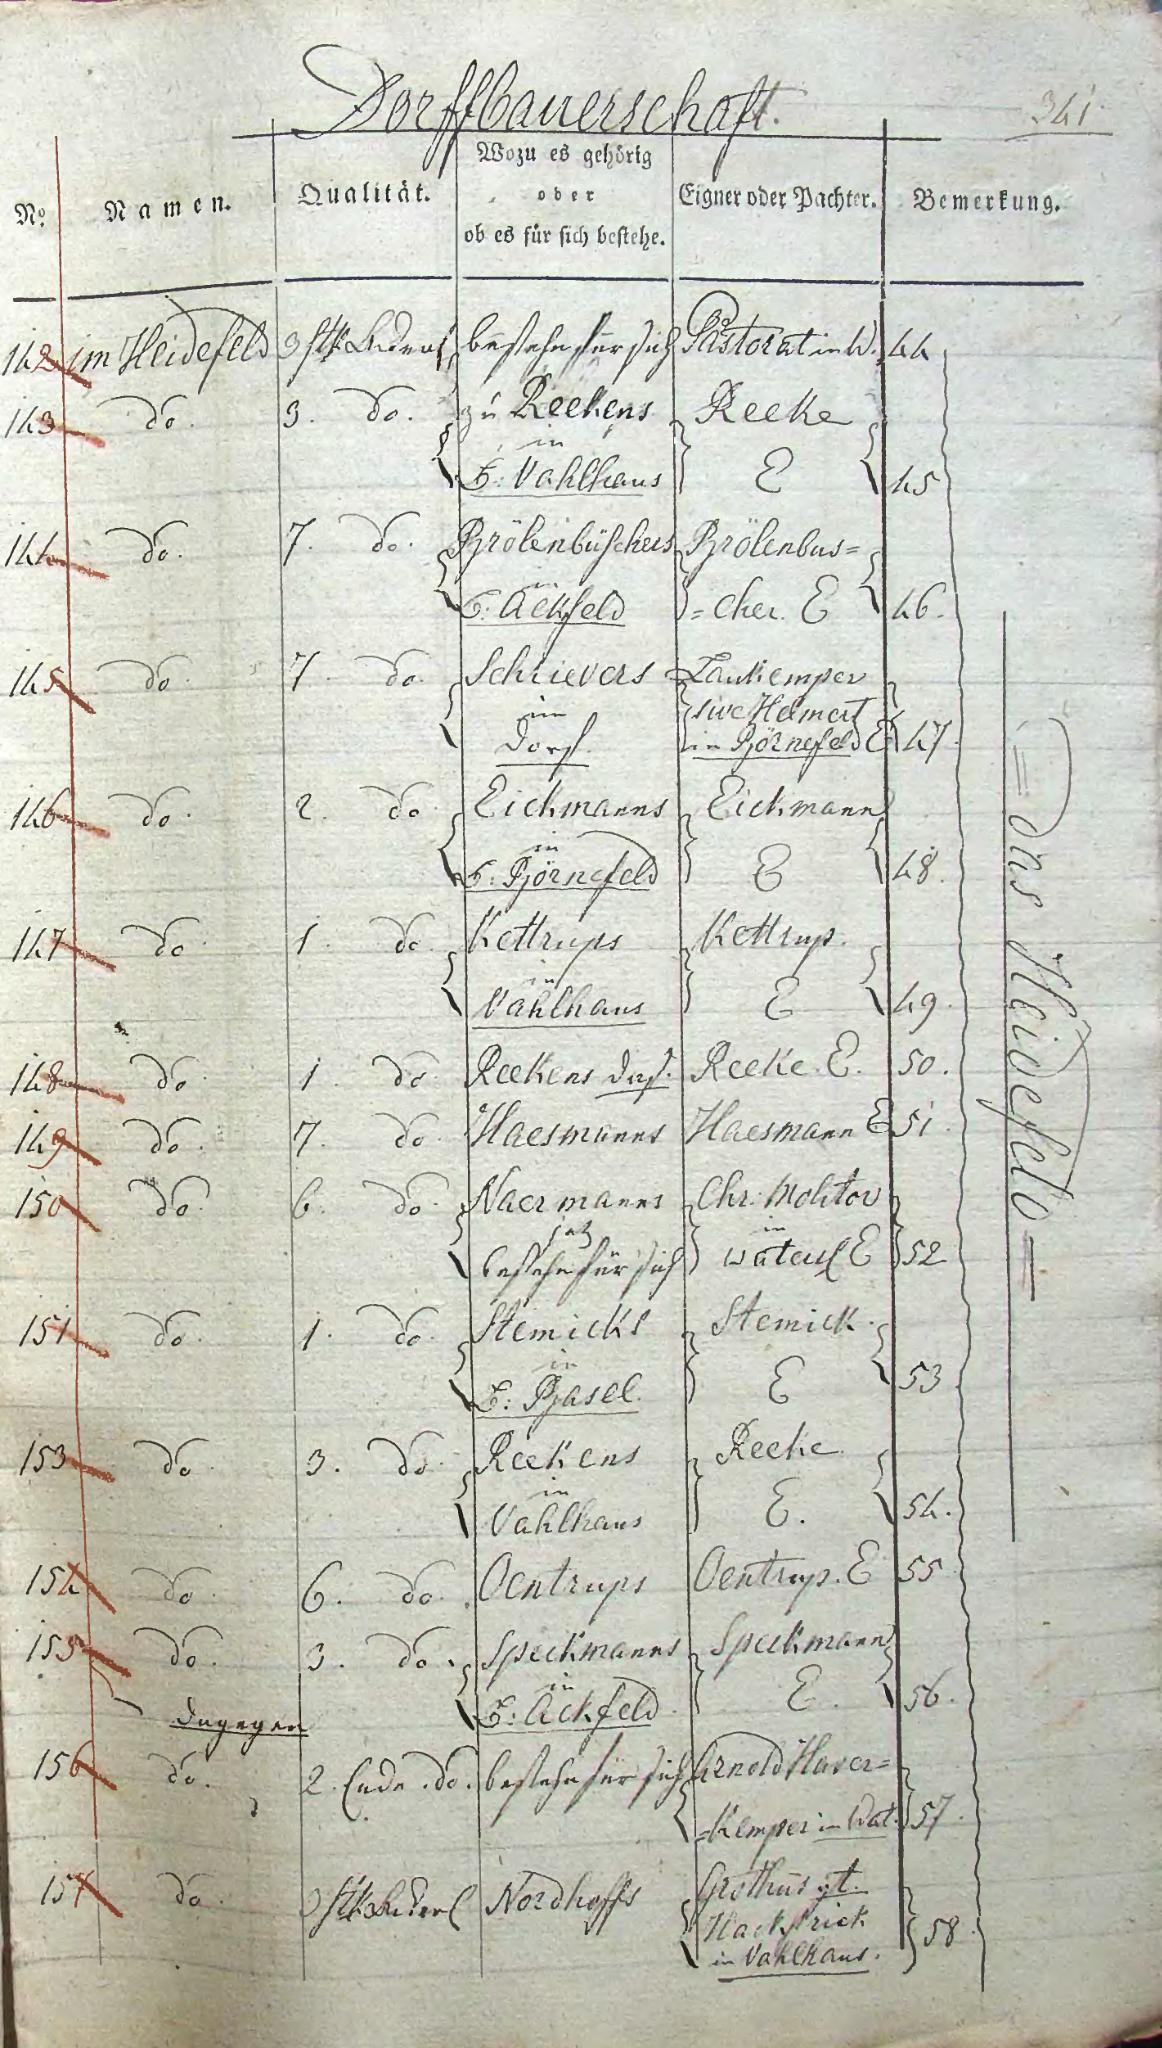 Dorffbauerschaft.
341
No. Namen. Qualität. Wozu es gehörig oder ob es für sich bestehe. Eigner oder Pachter. Bemerkung.
142 im Heidefeld 3 Stk bestehn für sich Pastorat in W. 44
143 do. 3. do. zu Reekens Reeke
in
B: Vahlhaus E 45
144 do. 7. do. Brölenbüschers Brölenbus=
in
B: Ackfeld =cher. E 46.
145 do. 7. do. Schrievers Lankemper
im sive Helmert
Dorf. in Börnefeld E 47.
146 do. 2. do Eickmanns Eickmann
in
B: Börnefeld E 48.
147 do. 1. do. Kettrups Kettrup.
in
Vahlhaus E 49.
148 do. 1 do. Reekens Reeke. E. 50.
149 do. 7. do. Haesmanns Haesmann E 51.
150 do. 6. do. Naermanns Chr: Molitor
jetz in
bestehn für sich E 52
151 do. 1. do. Stemicks Stemick.
in
B: Basel. E 53
153 do. 3. do. Reekens Reeke
in
Vahlhaus E. 54.
154 do. 6. do. Oentrups Oentrup. E 55
155 do. 3. do. Speckmanns Speckmann
in
B: Ackfeld. E. 56.
dagegen
156 do. 2. Ende do. bestehn für sich Arnold Haver=
=Kemper in Wat. 57.
157 do. 3 Stk Nordhoffs Grothus gt.
Hackstrick
in Vahlhaus. 58.
= Das Heidefeld =